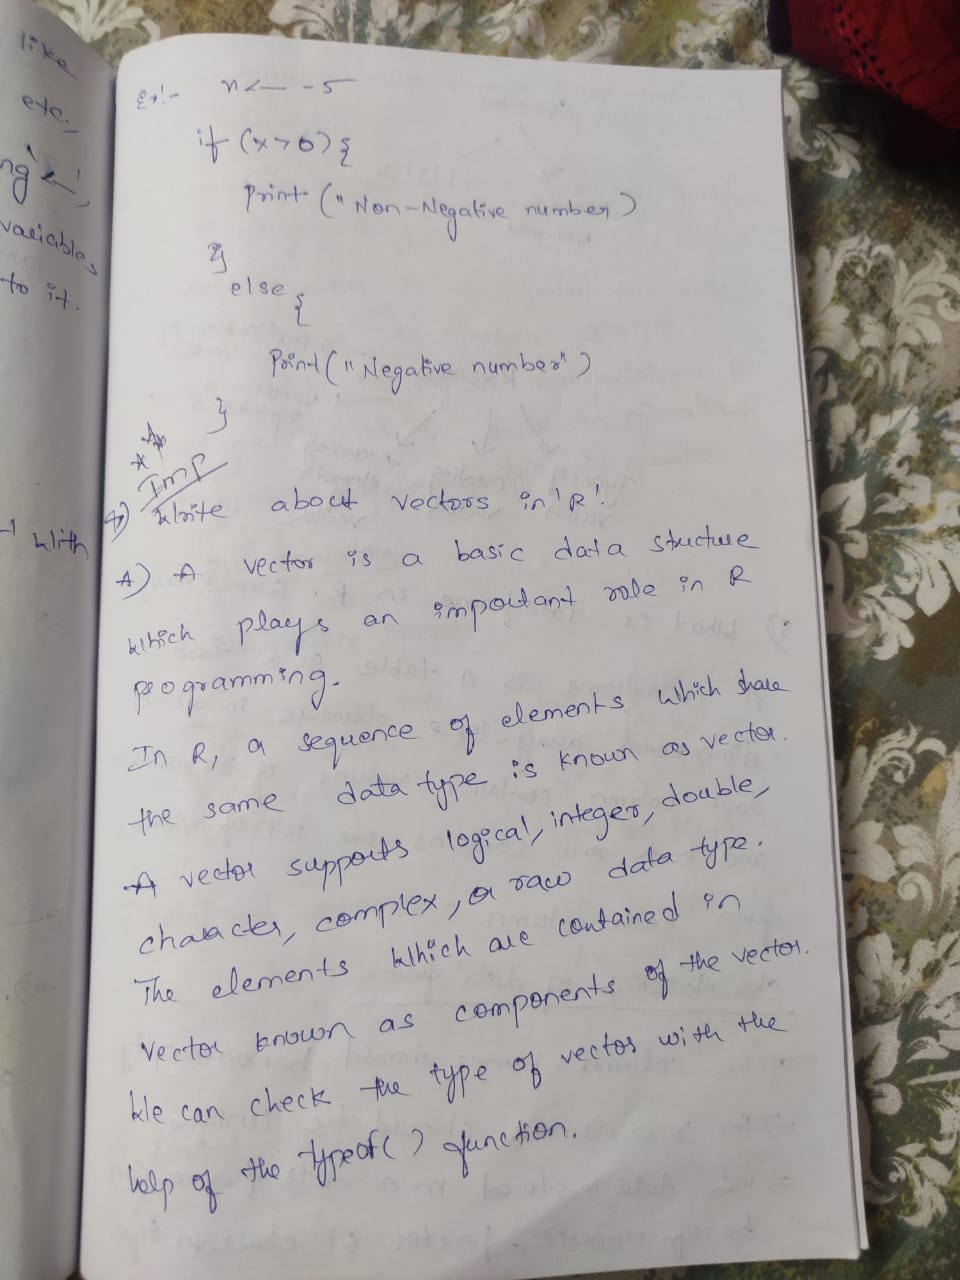 like
etc.,
ng '<-',
variables
to it.
with
Ex:- x <- -5
if (x>0){
print ("Non-Negative number)
}
else {
Print ("Negative number")
}
Imp
4) Write about vectors in 'R'.
A) A vector is a basic data structure
which plays an important role in R
programming.
In R, a sequence of elements which share
the same data type is known as vector.
A vector supports logical, integer, double,
character, complex, or raw data type.
The elements which are contained in
vector known as components of the vector.
We can check the type of vector with the
help of the typeof( ) function.